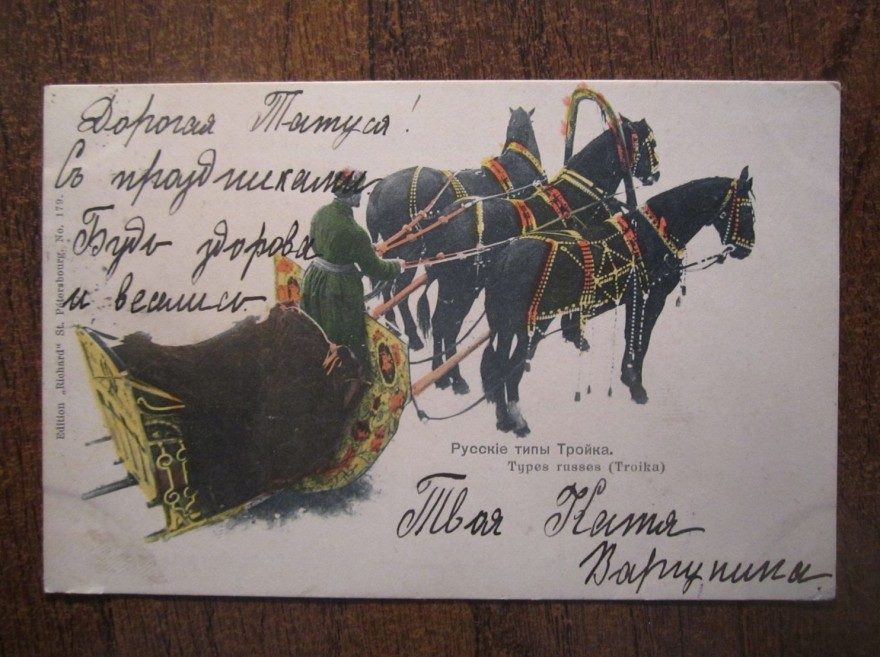 Дорогая Татуся!
Съ праздниками
Будь здорова
и веселись
Edition „Richard" St. Petersbourg, No. 179.
Русскіе типы Тройка.
Types russes (Troika)
Твоя Катя
Варгунина